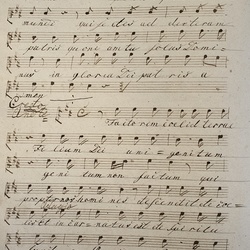 mundi qui sedes ad dexteram
patris quoniam tu solus Domi=
nus in gloria Dei patris a
men.
Credo
Factorem coeli et terrae
Filium Dei uni=genitum
genitum non factum qui
propter nos homines descendit de coe=
lis et incarnatus est de spiritu